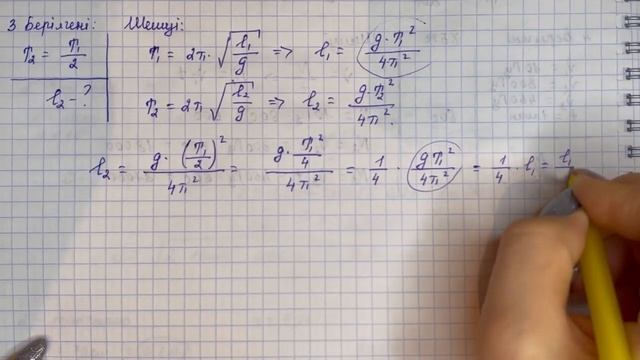 3 Берілгені: Шешуі:
T₂ = T₁/2 T₁ = 2π · √(l₁/g) => l₁ = g · T₁²/4π²
l₂ - ? T₂ = 2π √(l₂/g) => l₂ = g · T₂²/4π²
l₂ = g · (T₁/2)²/4π² = g · T₁²/4/4π² = 1/4 · gT₁²/4π² = 1/4 · l₁ = l₁/